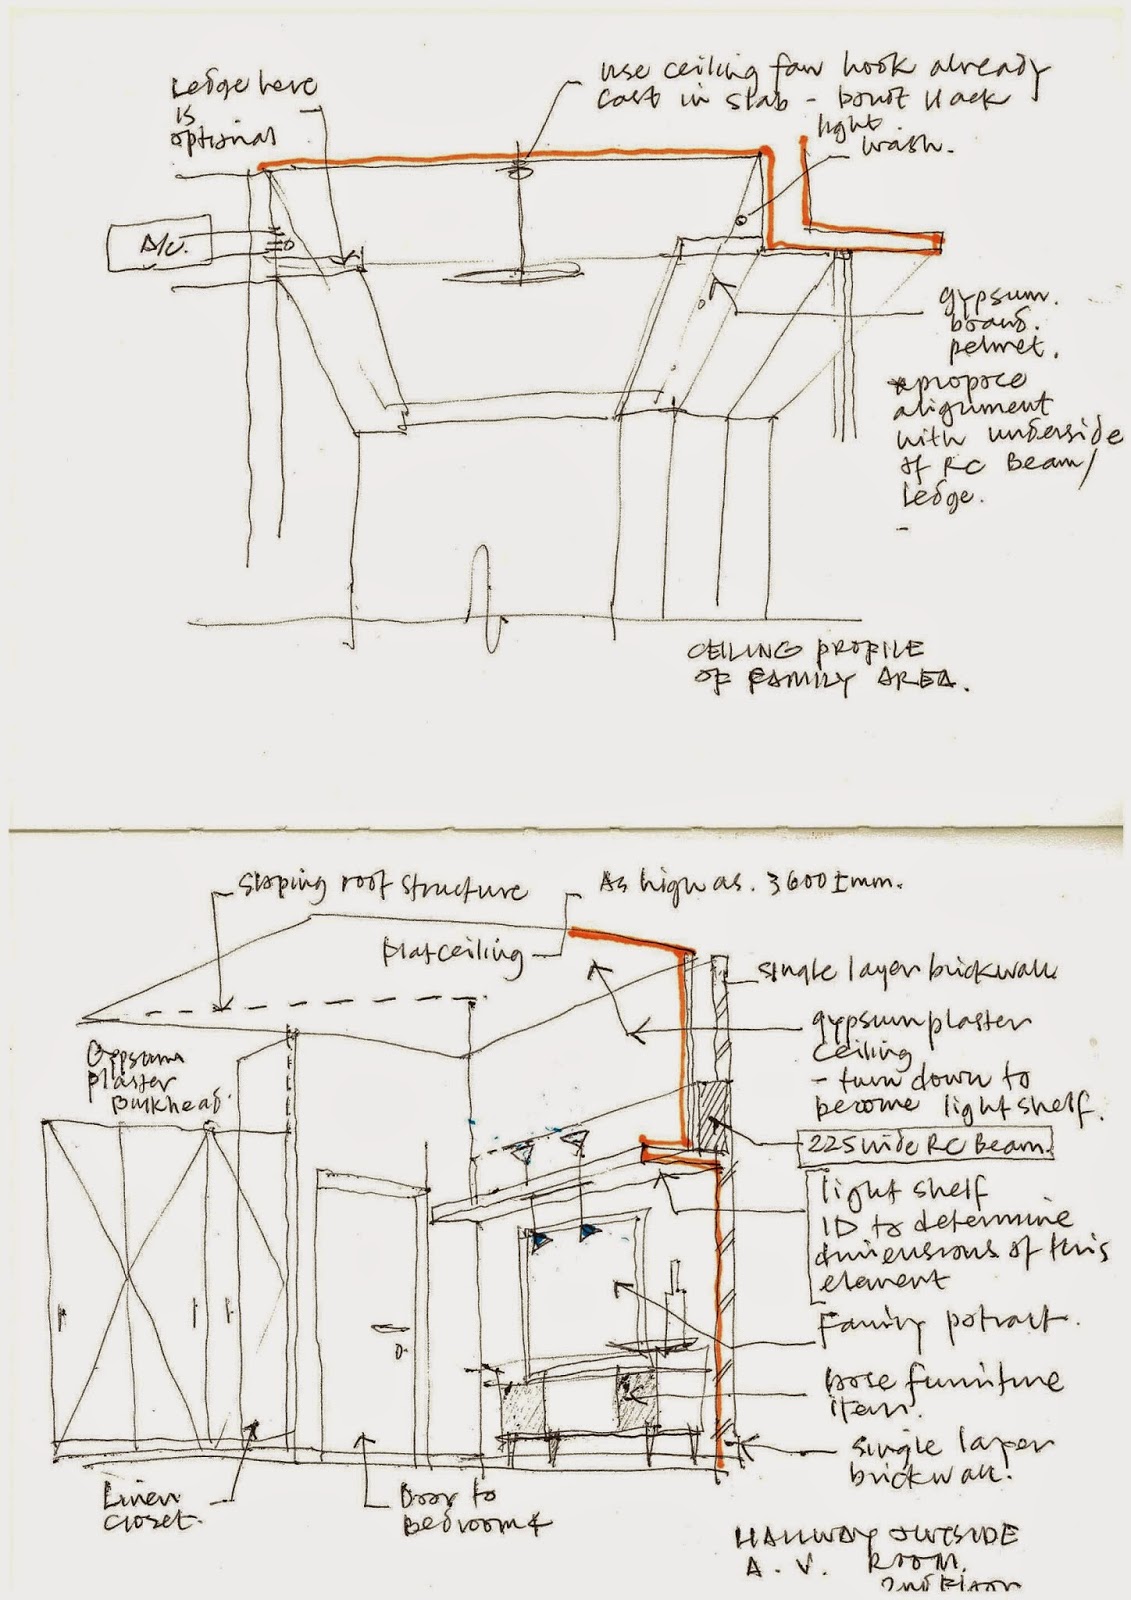 Ledge here
is
optional
use ceiling fan hook already
cast in slab - donot Hack
light
wash.
A/C.
gypsum.
board.
pelmet.
*propose
alignment
with underside
of RC Beam/
Ledge.
CEILING PROFILE
OF FAMILY AREA.
Sloping roof structure
As high as. 3600±mm.
Flat ceiling
single layer brickwall
gypsum plaster
ceiling
- turn down to
become light shelf.
Gypsum
plaster
Bulkhead.
225 wide RC Beam.
light shelf
ID to determine
dimensions of this
element
Family potrait.
loose furniture
item.
single layer
brickwall.
Linen
closet.
Door to
Bedroom 4
HALLWAY OUTSIDE
A.V. ROOM.
2nd Floor